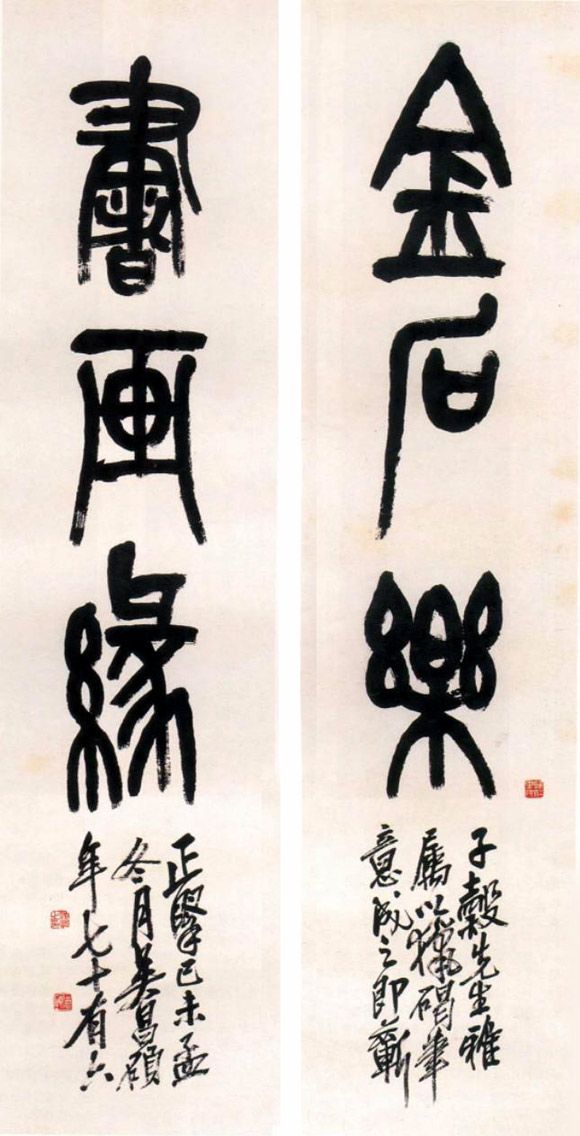 金石樂
子穀先生雅
屬以獵碣筆
意成之即蘄
書画緣
正擧己未孟
冬月吴昌碩
年七十有六